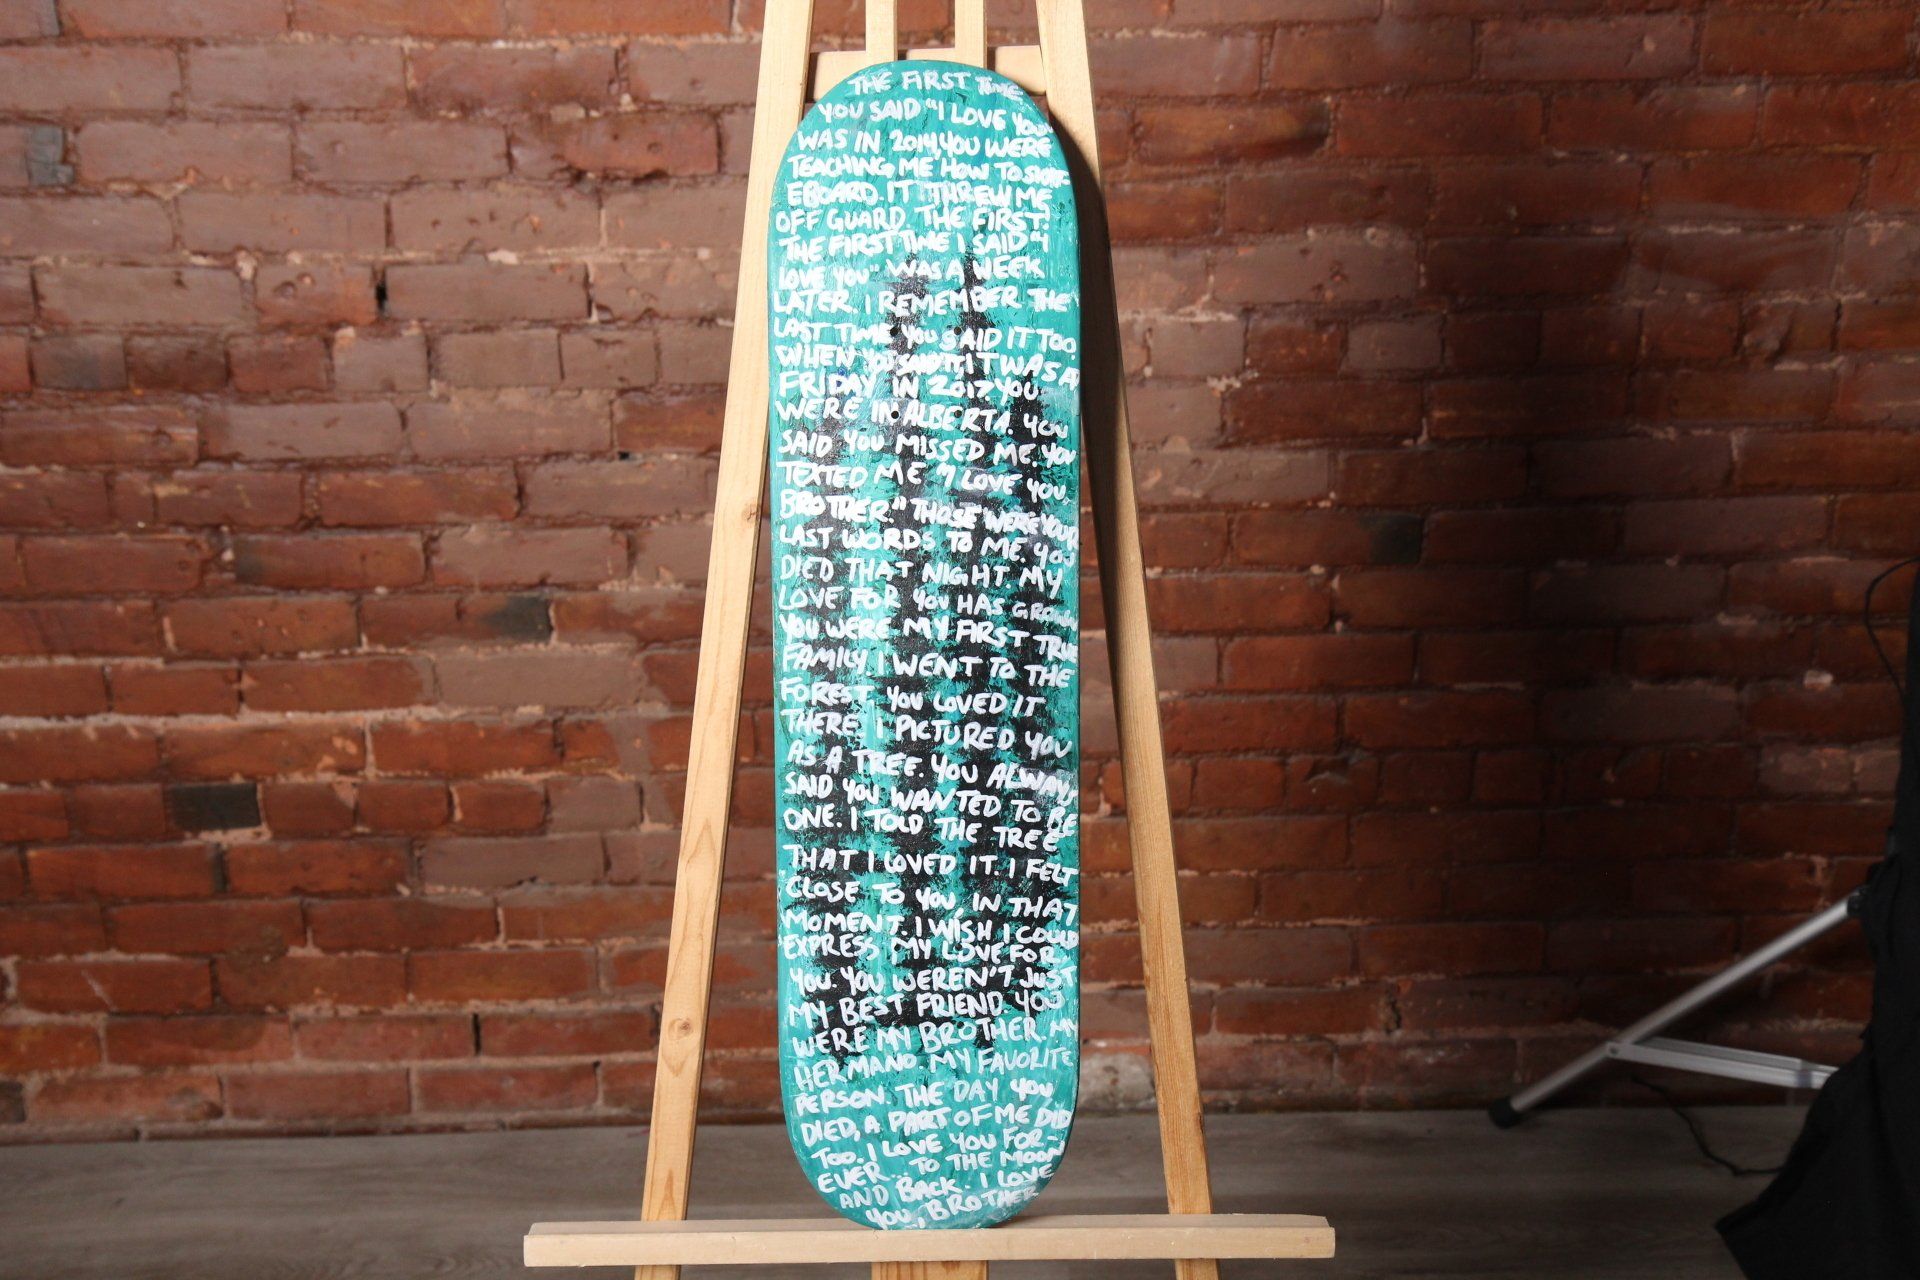 THE FIRST TIME
YOU SAID "I LOVE YOU"
WAS IN 2014, YOU WERE
TEACHING ME HOW TO SKAT-
EBOARD. IT THREW ME
OFF GUARD THE FIRST.
THE FIRST TIME I SAID "I
LOVE YOU" WAS A WEEK
LATER. I REMEMBER THE
LAST TIME YOU SAID IT TOO.
WHEN YOU IT WAS A
FRIDAY IN 2017. YOU
WERE IN ALBERTA. YOU
SAID YOU MISSED ME. YOU
TEXTED ME "I LOVE YOU,
BROTHER." THOSE WERE YOUR
LAST WORDS TO ME. YOU
DIED THAT NIGHT. MY
LOVE FOR YOU HAS GROWN
YOU WERE MY FIRST TRUE
FAMILY I WENT TO THE
FOREST. YOU LOVED IT
THERE. I PICTURED YOU
AS A TREE. YOU ALWAYS
SAID YOU WANTED TO BE
ONE. I TOLD THE TREE
THAT I LOVED IT. I FELT
CLOSE TO YOU, IN THAT
MOMENT. I WISH I COULD
EXPRESS MY LOVE FOR
YOU. YOU WEREN'T JUST
MY BEST FRIEND. YOU
WERE MY BROTHER. MY
HERMANO. MY FAVORITE
PERSON. THE DAY YOU
DIED, A PART OF ME DID
TOO. I LOVE YOU FOR-
EVER. TO THE MOON
AND BACK. I LOVE
YOU, BROTHER